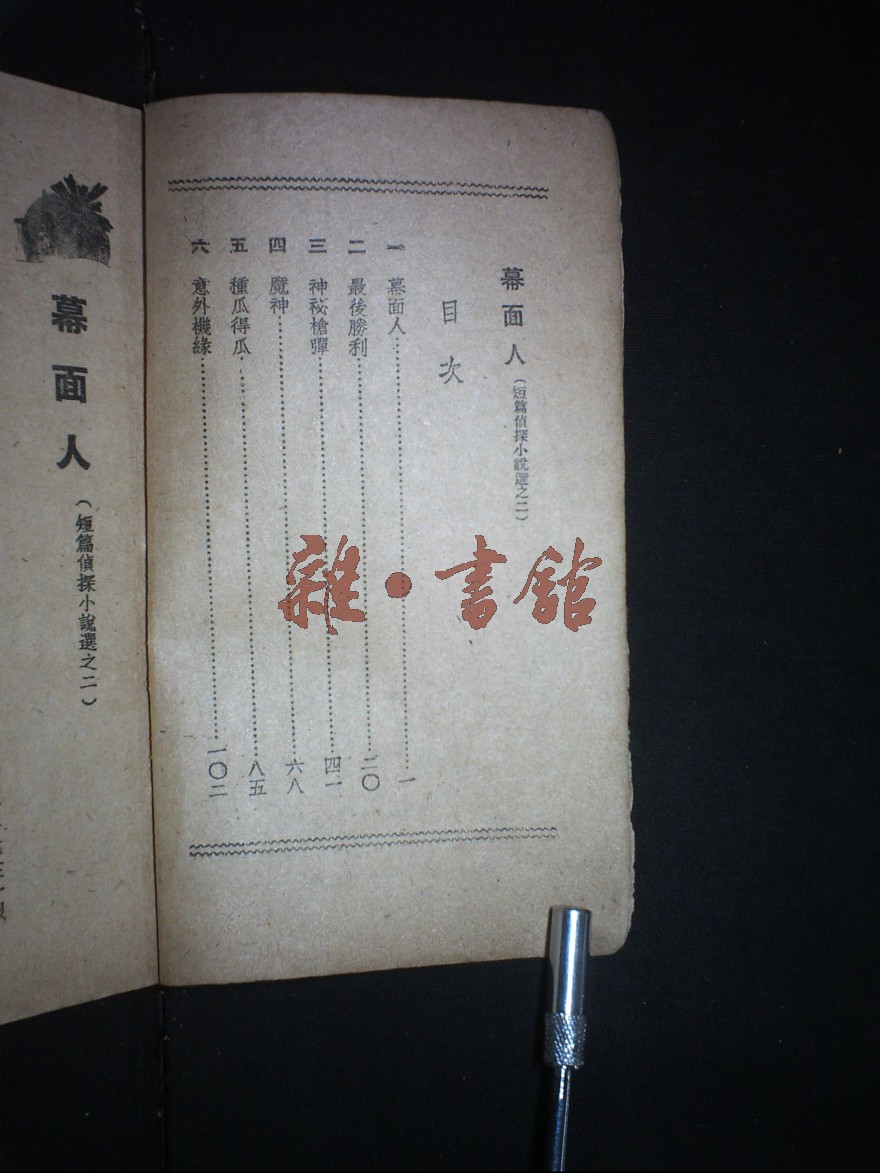 幕面人（短篇偵探小說選之二）
目次
一 幕面人⋯⋯一
二 最後勝利⋯⋯二〇
三 神祕槍彈⋯⋯四一
四 魔神⋯⋯六八
五 種瓜得瓜⋯⋯八五
六 意外機緣⋯⋯一〇二
幕面人
（短篇偵探小說選之二）
雜·書館